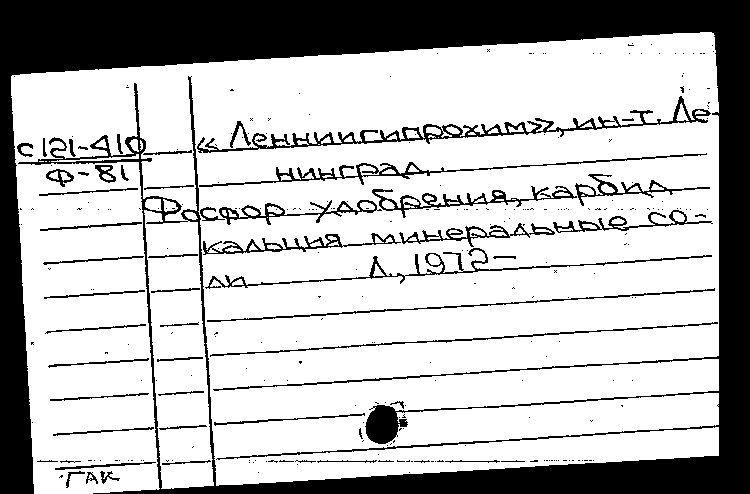 с121-410
Ф-81
«Ленниигипрохим», ин-т. Ле-
нинград.
Фосфор удобрения, карбид
кальция минеральные со-
ли Л., 1972-
ГАК